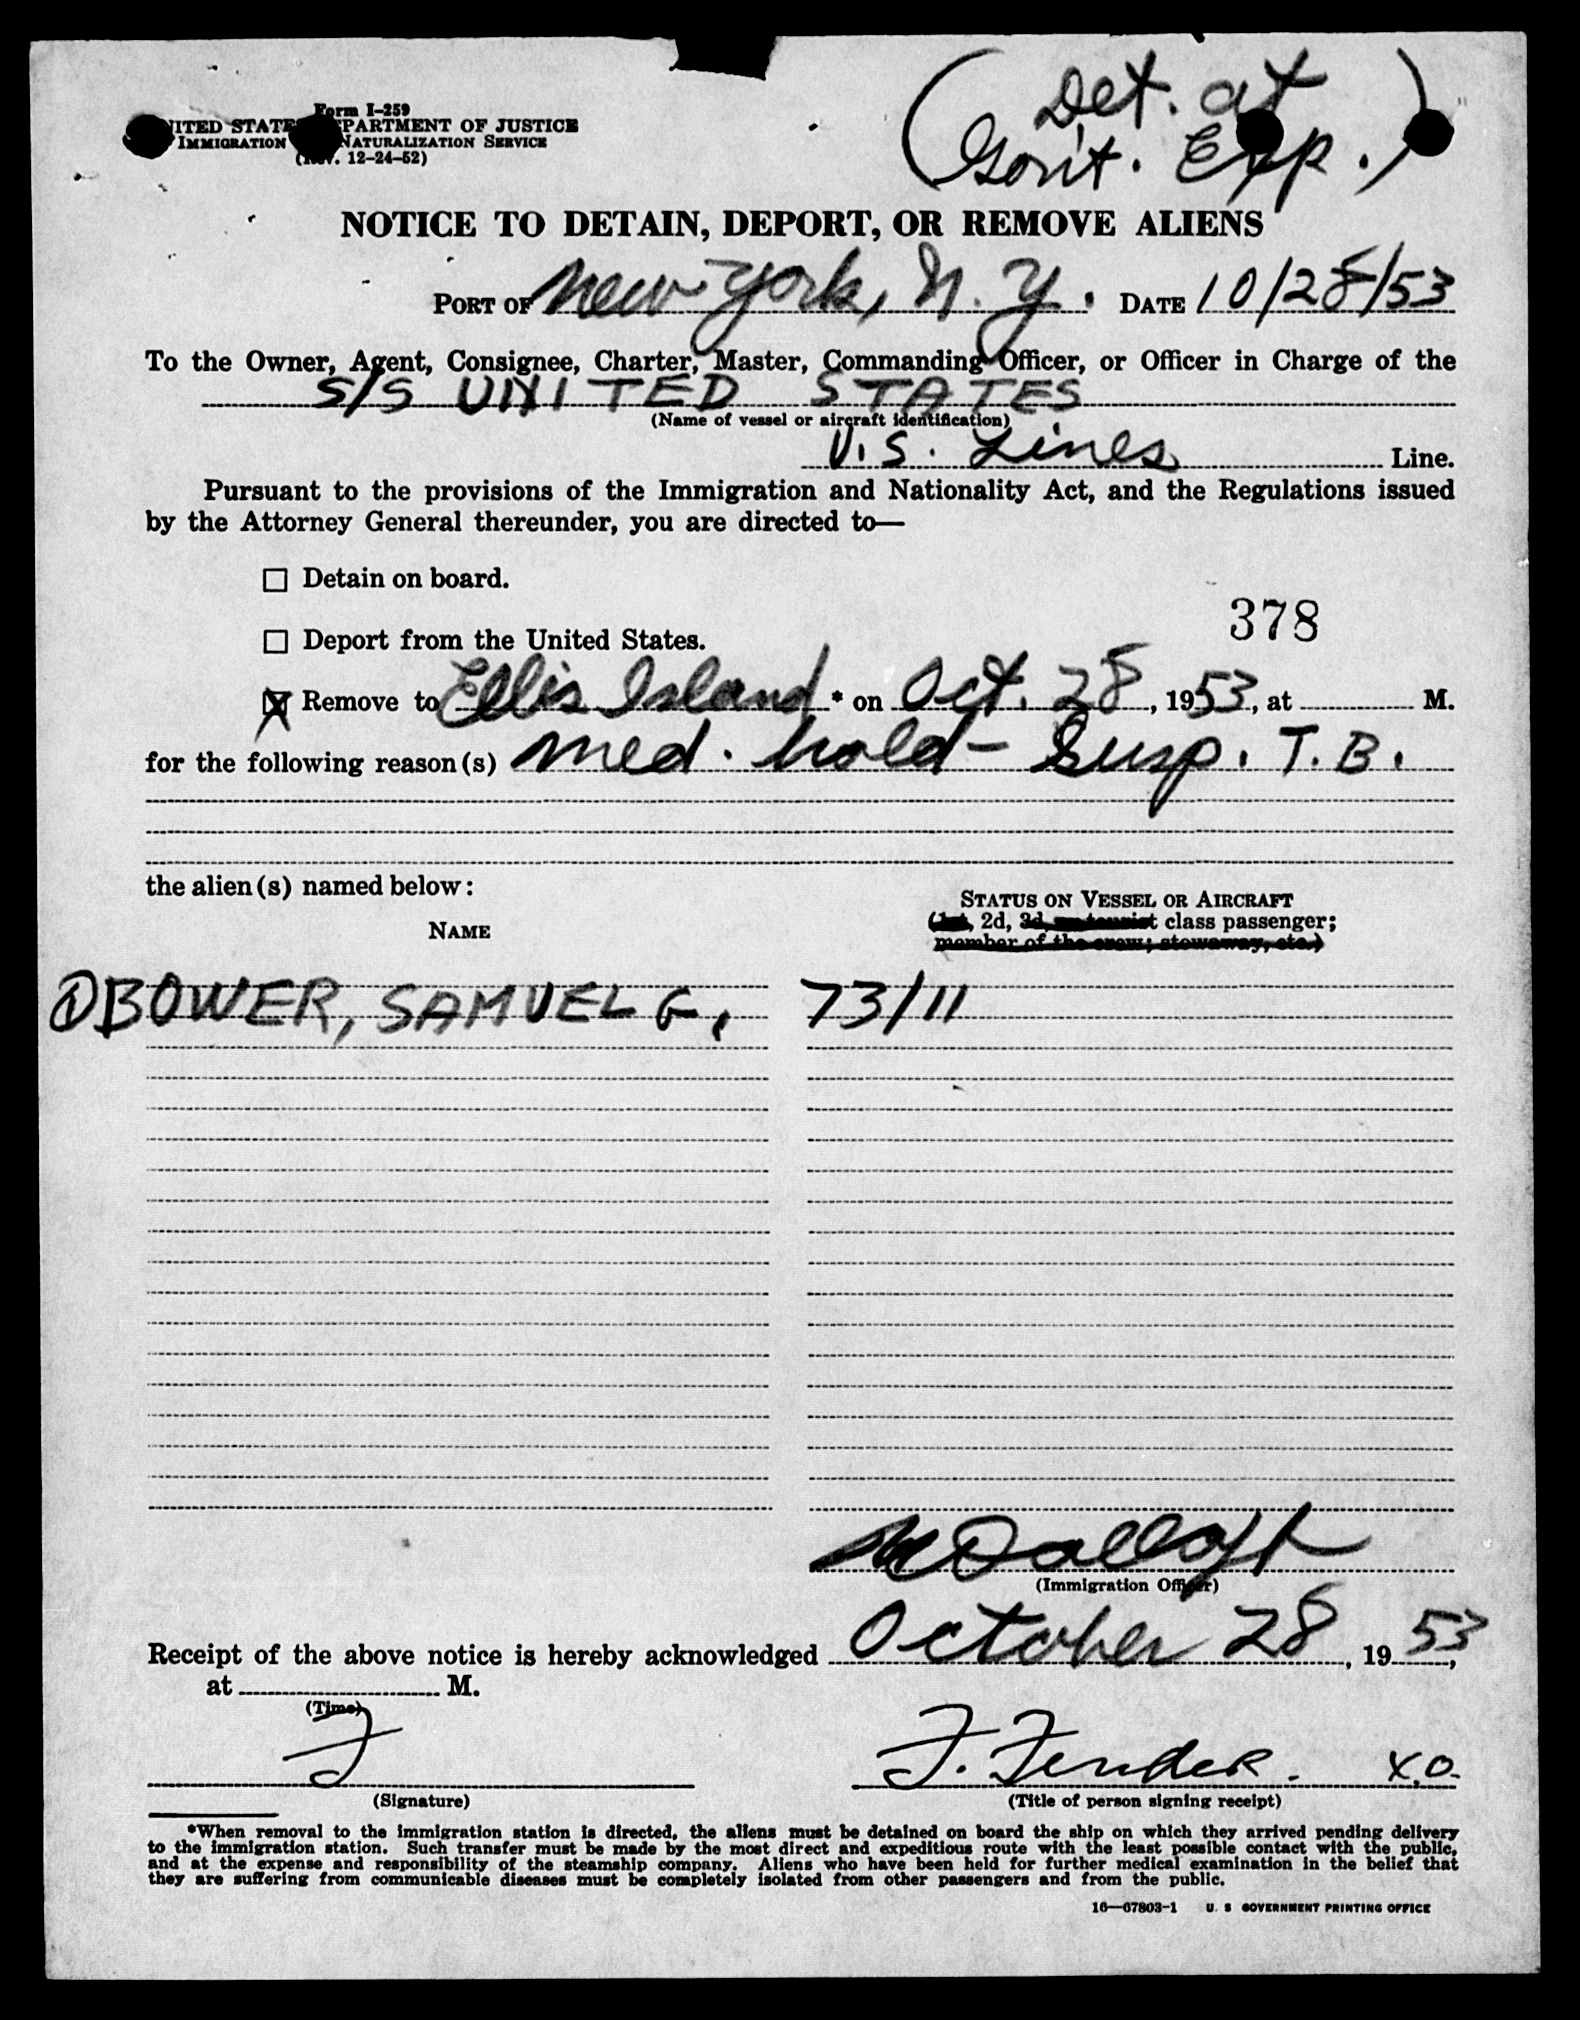 Form I-259
UNITED STATES DEPARTMENT OF JUSTICE
IMMIGRATION NATURALIZATION SERVICE
(Rev. 12-24-52)
(Det. at
Gov't. Exp.)
NOTICE TO DETAIN, DEPORT, OR REMOVE ALIENS
PORT OF New York, N.Y. DATE 10/28/53
To the Owner, Agent, Consignee, Charter, Master, Commanding Officer, or Officer in Charge of the
S/S UNITED STATES
(Name of vessel or aircraft identification)
U.S. Lines Line.
Pursuant to the provisions of the Immigration and Nationality Act, and the Regulations issued
by the Attorney General thereunder, you are directed to—
☐ Detain on board.
378
☐ Deport from the United States.
☒ Remove to Ellis Island * on Oct. 28, 1953, at M.
for the following reason(s) med. hold - Susp. T.B.
the alien(s) named below:
STATUS ON VESSEL OR AIRCRAFT
(1st, 2d, 3d, or tourist class passenger;
member of the crew; stowaway, etc.)
NAME
① BOWER, SAMUEL G. 73/11
(Immigration Officer)
Receipt of the above notice is hereby acknowledged October 28, 1953,
at M.
(Time)
F F. Fender. X.O.
(Signature) (Title of person signing receipt)
*When removal to the immigration station is directed, the aliens must be detained on board the ship on which they arrived pending delivery
to the immigration station. Such transfer must be made by the most direct and expeditious route with the least possible contact with the public,
and at the expense and responsibility of the steamship company. Aliens who have been held for further medical examination in the belief that
they are suffering from communicable diseases must be completely isolated from other passengers and from the public.
16—67803-1 U. S GOVERNMENT PRINTING OFFICE